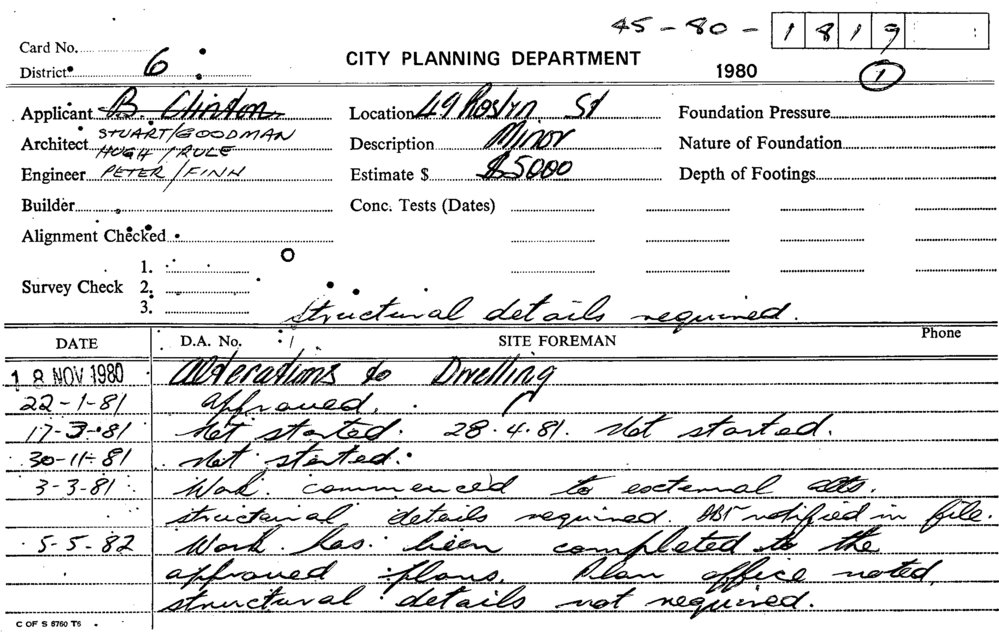 45-80-1819
Card No.
District 6
CITY PLANNING DEPARTMENT
1980
1
Applicant B. Clinton
Location 49 Roslyn St
Foundation Pressure
Architect STUART/GOODMAN
HUGH/RULE
Description Minor
Nature of Foundation
Engineer PETER/FINN
Estimate $ $5000
Depth of Footings
Builder
Conc. Tests (Dates)
Alignment Checked
Survey Check 1.
2.
3.
structural details required.
DATE D.A. No. SITE FOREMAN Phone
18 NOV 1980 Alterations to Dwelling
22-1-81 approved.
17-3-81 Not started. 28.4.81. Not started.
30-11-81 Not started.
3-3-81 Work commenced to external alts.
structural details required. notified in file.
5-5-82 Work has been completed to the
approved plans. Plan office noted,
structural details not required.
C OF S 8760 T6